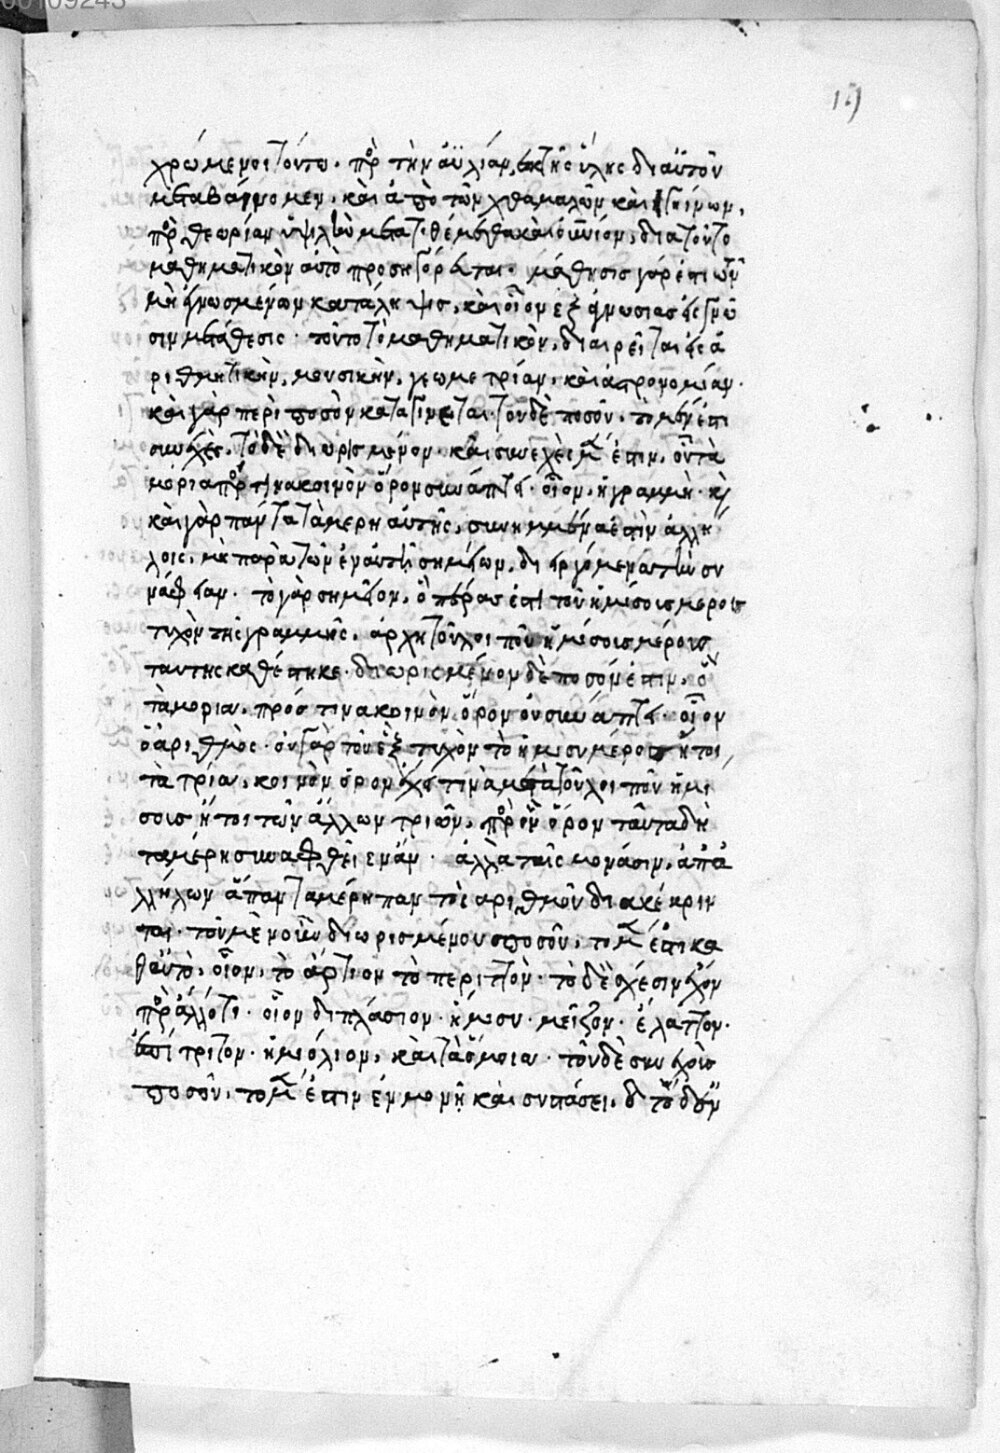 00109243
19
χρώμενοι τούτω. πρὸς τὴν ἀϋλίαν, ἐκ τῆς ὕλης δι' αὐτοῦ
μεταβαίνομεν. καὶ ἀπὸ τῶν χθαμαλῶν καὶ
πρὸς θεωρίαν ὑψηλὴν διατοῦτο
μαθηματικὸν αὐτὸ προσηγόρευται. μάθησις γάρ ἐστι τῶν
μὴ ἐγνωσμένων κατάληψις, καὶ οἷον ἐξ ἀγνωσίας εἰς γνῶ
σιν μετάθεσις: τοῦτο τὸ μαθηματικὸν, διαιρεῖται εἰς ἀ
ριθμητικὴν, μουσικὴν, γεωμετρίαν, καὶ ἀστρονομίαν.
καὶ γὰρ περὶ ποσὸν καταγίνεται. τοῦ δὲ ποσοῦ, τὸ μέν ἐστι
συνεχὲς. τὸ δὲ διωρισμένον. καὶ συνεχὲς μέν ἐστιν, οὗ τὰ
μόρια πρός τινα κοινὸν ὅρον συνάπτει. οἷον, ἡ γραμμὴ.
καὶ γὰρ πάντα τὰ μέρη αὐτῆς, συνημμένα ἐστὶν ἀλλή
λοις, παρὰ τῶν ἐν αὐτῆ σημείων, διειργόμενα τὴν συ
νάφειαν. τὸ γὰρ σημεῖον, ὃ πέρας ἐστὶ τοῦ ἡμίσους μέρους
τυχὸν τῆς γραμμῆς, ἀρχὴ τοῦ λοιποῦ ἡμίσους μέρους
ταύτης καθέστηκε. διωρισμένον δὲ ποσόν ἐστιν, οὗ
τὰ μόρια, πρός τινα κοινὸν ὅρον οὐ συνάπτει. οἷον
ὁ ἀριθμὸς. οὐ γὰρ τοῦ ἓξ τυχὸν τὸ ἥμισυ μέρος ἤτοι,
τὰ τρία, κοινὸν ὅρον ἔχει τινὰ μετὰ τοῦ λοιποῦ ἡμί
σους ἤτοι τῶν ἄλλων τριῶν, πρὸς ὃν ὅρον ταῦτα δὴ
τὰ μέρη συναφθεῖεν ἄν. ἀλλὰ ταῖς μονάσιν, ἀπ' ἀ
λλήλων ἅπαντα μέρη παντὸς ἀριθμοῦ διακέκριν
ται. τοῦ μὲν οὖν διωρισμένου ποσοῦ, τὸ μέν ἐστι κα
θαὑτὸ, οἷον, τὸ ἄρτιον τὸ περιττὸν. τὸ δὲ σχέσιν ἔχον
πρὸς ἄλλό τι. οἷον διπλάσιον. ἥμισυ. μεῖζον. ἔλαττον.
ἐπίτριτον. ἡμιόλιον, καὶ τὰ ὅμοια. τοῦ δὲ συνεχοῦς
ποσοῦ, τὸ μέν ἐστιν ἐν μονῆ καὶ στάσει,